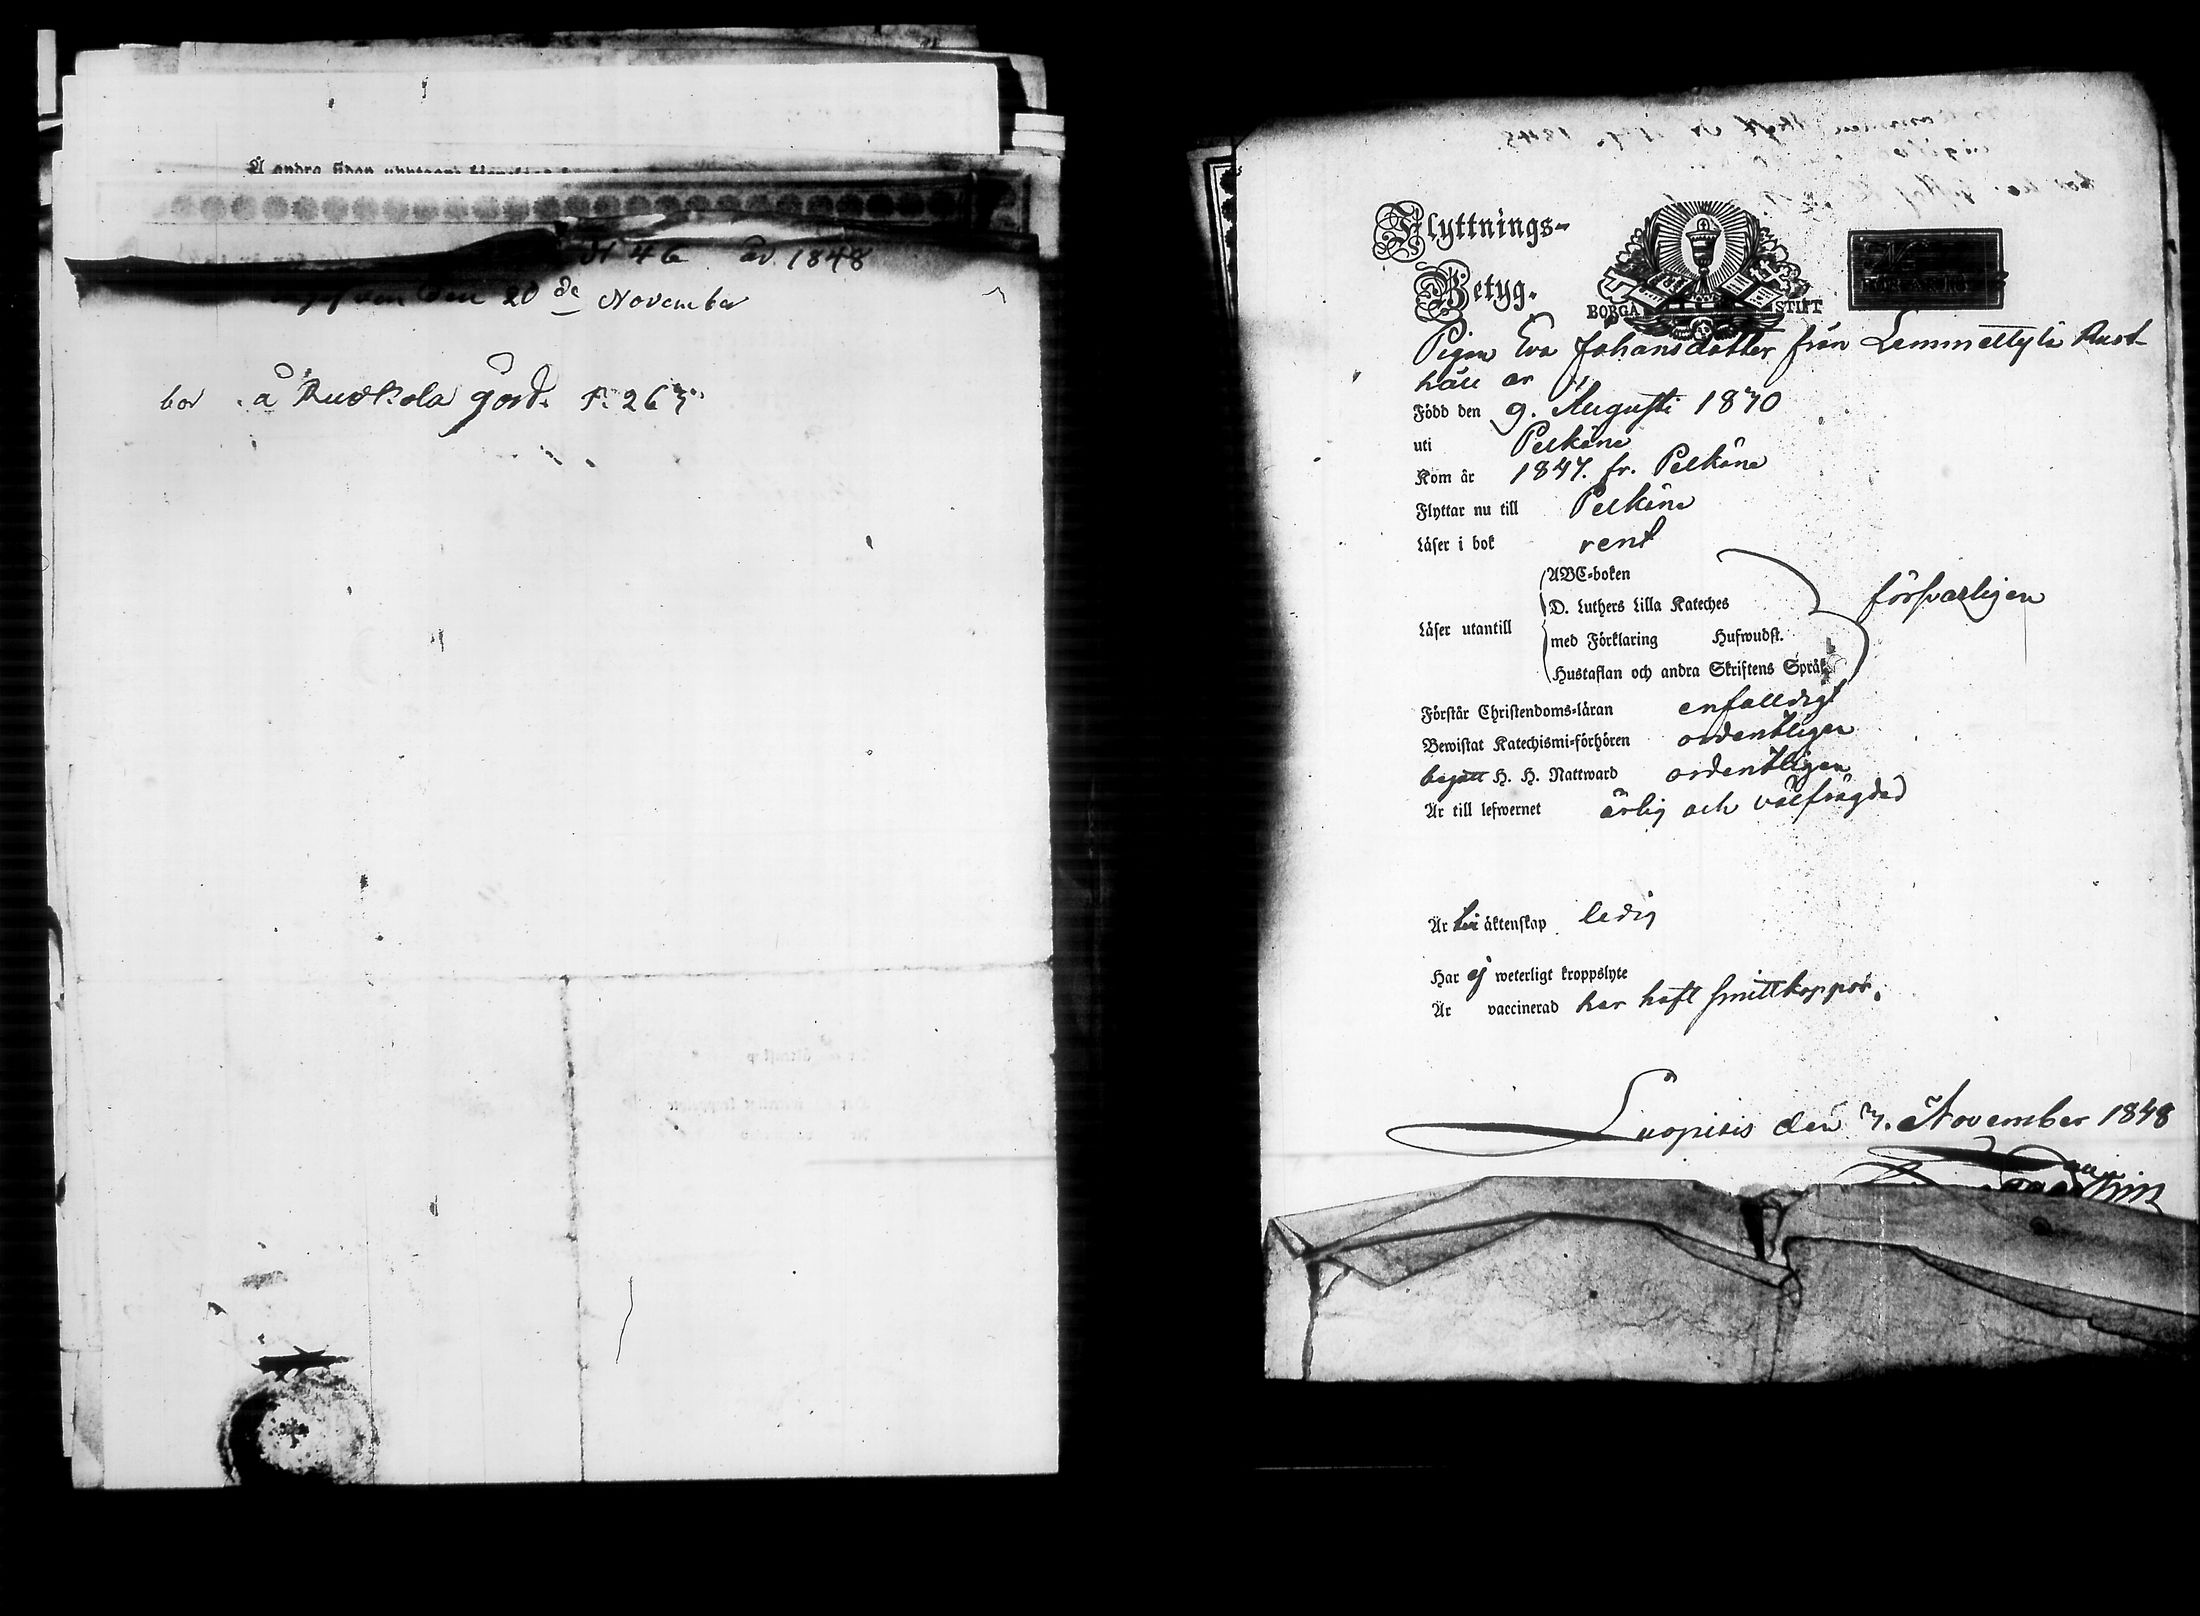 Å andra sidan
46 år 1848
den 20de November
bor å Ruokola gård. P. 267
Flyttnings-
Betyg.
BORGÅ STIFT
Pigan Eva Johansdotter från Lemmettylä Rust-
håll är
Född den 9. Augusti 1830
uti Pelkäne
Kom år 1847. fr. Pelkäne
Flyttar nu till Pelkäne
Läser i bok rent
ABC-boken
D. Luthers Lilla Kateches
Läser utantill
med Förklaring Hufwudst.
Hustaflan och andra Skriftens Språk
försvarligen
Förstår Christendoms-läran enfalldigt
Bewistat Katechismi-förhören ordentligen
begått H. H. Nattward ordentligen
Är till lefwernet ärlig och välfrägdad
Är till äktenskap ledig
Har ej weterligt kroppslyte
Är vaccinerad har haft smittkoppor.
Luopiois den 7. November 1848